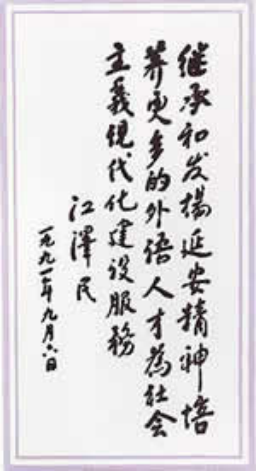 继承和发揚延安精神培
养更多的外语人才為社会
主義现代化建设服務
江澤民
一九九一年九月六日